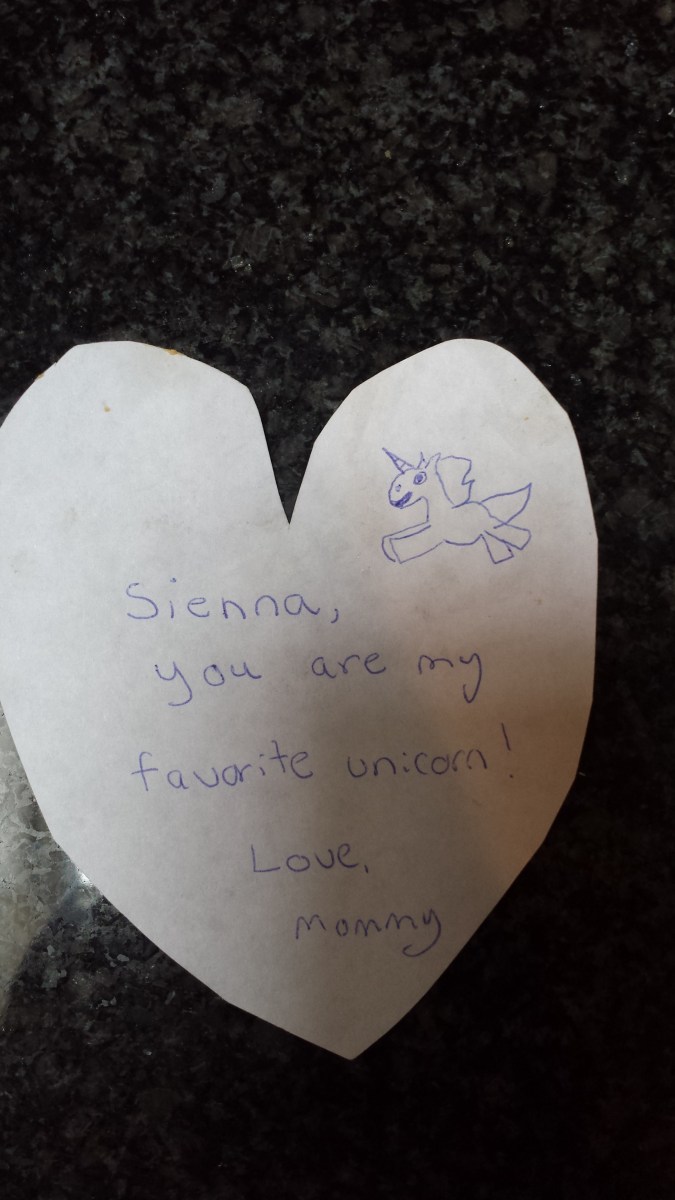 Sienna,
you are my
favorite unicorn!
Love,
Mommy